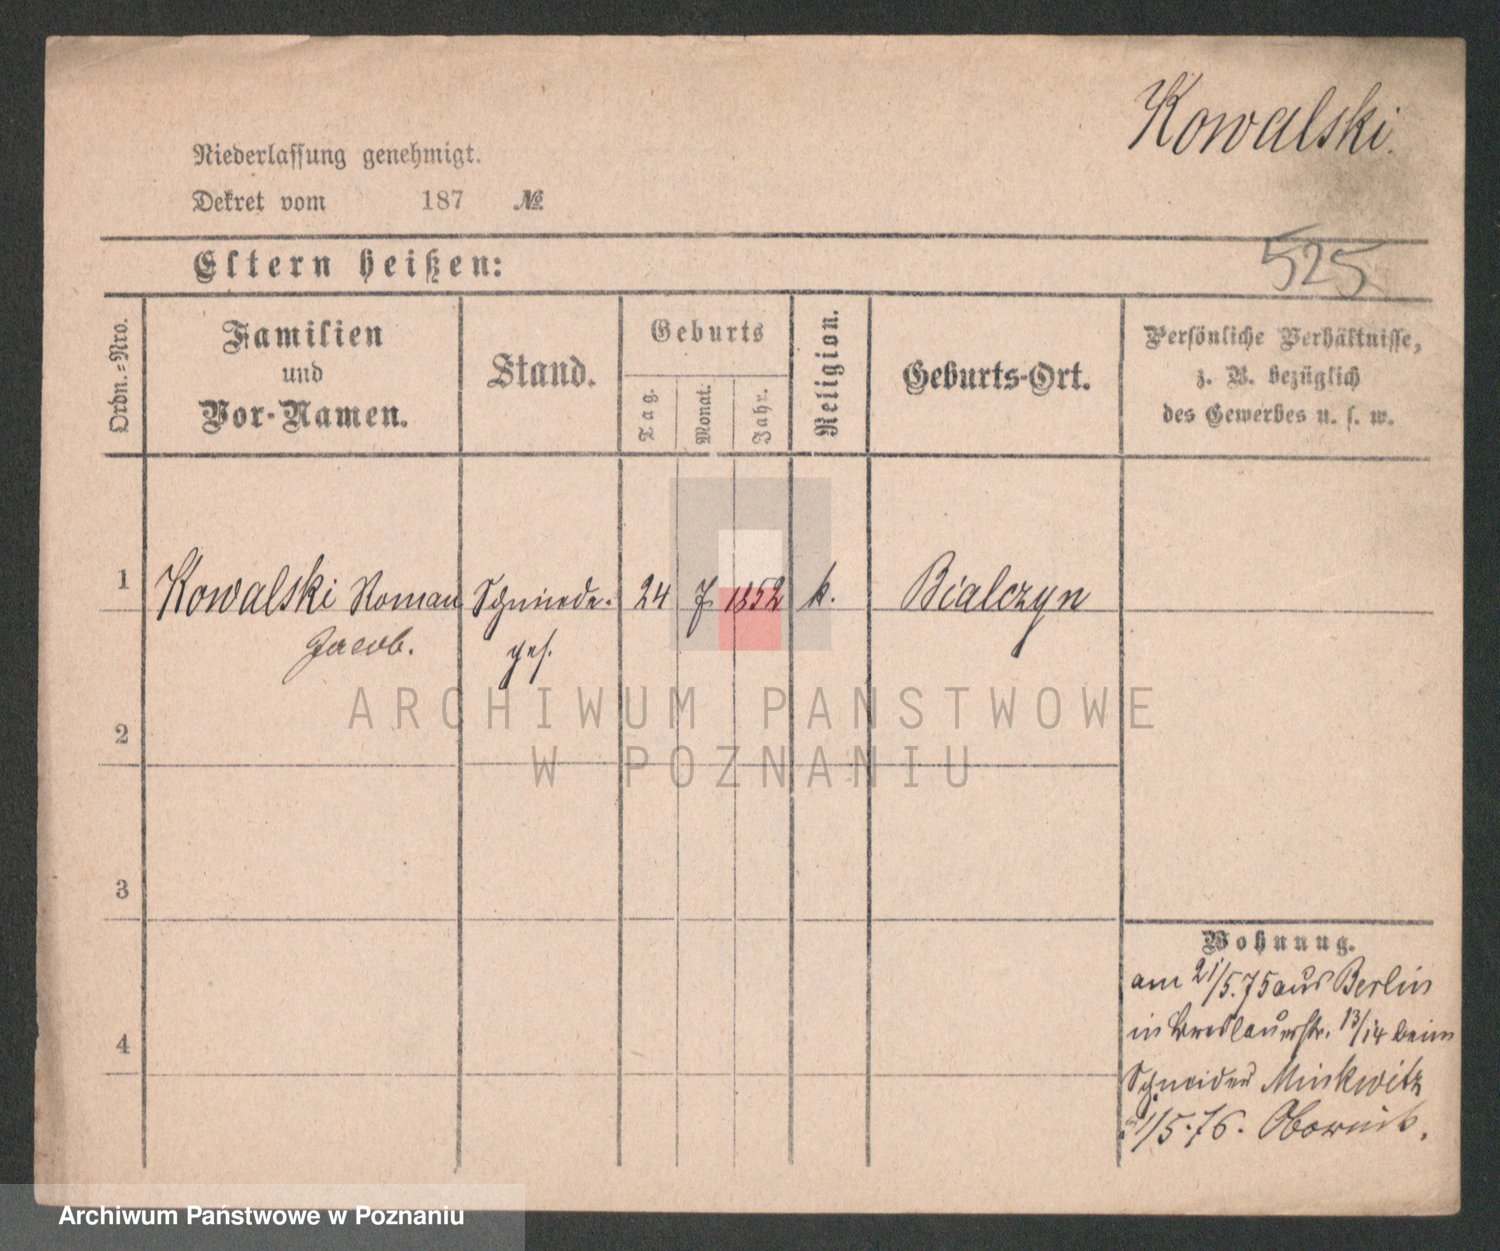 Kowalski.
Niederlassung genehmigt.
Dekret vom 187 №
Eltern heißen:
525
Ordn.-Nro.
Familien
und
Vor-Namen.
Stand.
Geburts
Tag.
Monat.
Jahr.
Religion.
Geburts-Ort.
Persönliche Verhältnisse,
z. B. bezüglich
des Gewerbes u. s. w.
1 Kowalski Roman Schmiede- 24 7 1852 k. Bialczyn
Jacob. ges.
2
3
4
Wohnung.
am 21/5.75 aus Berlin
in Breslauerstr. 13/14 beim
Schneider Minkwitz
/5.76. Obornik.
ARCHIWUM PAŃSTWOWE
W POZNANIU
Archiwum Państwowe w Poznaniu